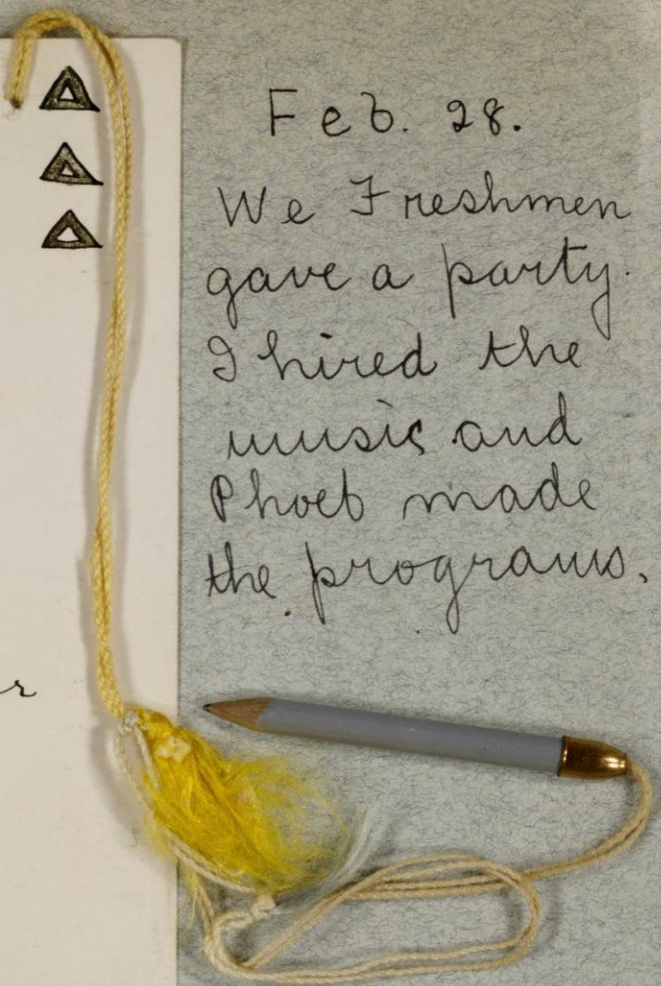 Feb. 28.
We Freshmen
gave a party.
I hired the
music and
Phoeb made
the programs.
r